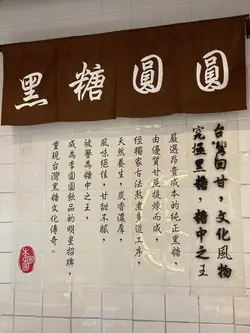 黑糖圓圓
台灣回甘，文化風物
究猛黑糖，糖中之王
嚴選昂貴成本的純正黑糖
由優質甘蔗提煉而成，
經獨家古法熬煮多道工序，
天然養生，炭香濃厚，
風味絕佳，甘甜不膩，
被譽為糖中之王，
成為李圓圓飲品的明星招牌，
重現台灣黑糖文化傳奇。